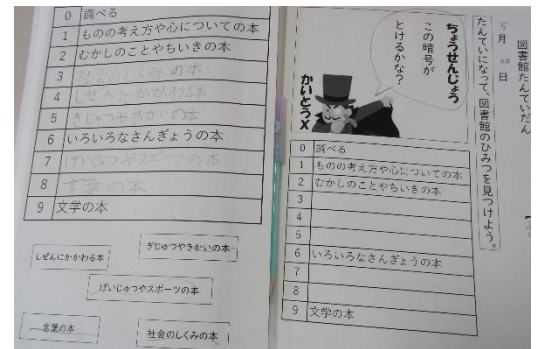 0 調べる
1 ものの考え方や心についての本
2 むかしのことやちいきの本
3 社会のしくみの本
4 しぜんにかかわる本
5 ぎじゅつやきかいの本
6 いろいろなさんぎょうの本
7 げいじゅつやスポーツの本
8 言葉の本
9 文学の本
ぎじゅつやきかいの本
しぜんにかかわる本
げいじゅつやスポーツの本
言葉の本
社会のしくみの本
図書館たんていだん
月 日
たんていになって、図書館のひみつを見つけよう。
ちょうせんじょう
この暗号が
とけるかな?
かいとうX
0 調べる
1 ものの考え方や心についての本
2 むかしのことやちいきの本
3
4
5
6 いろいろなさんぎょうの本
7
8
9 文学の本